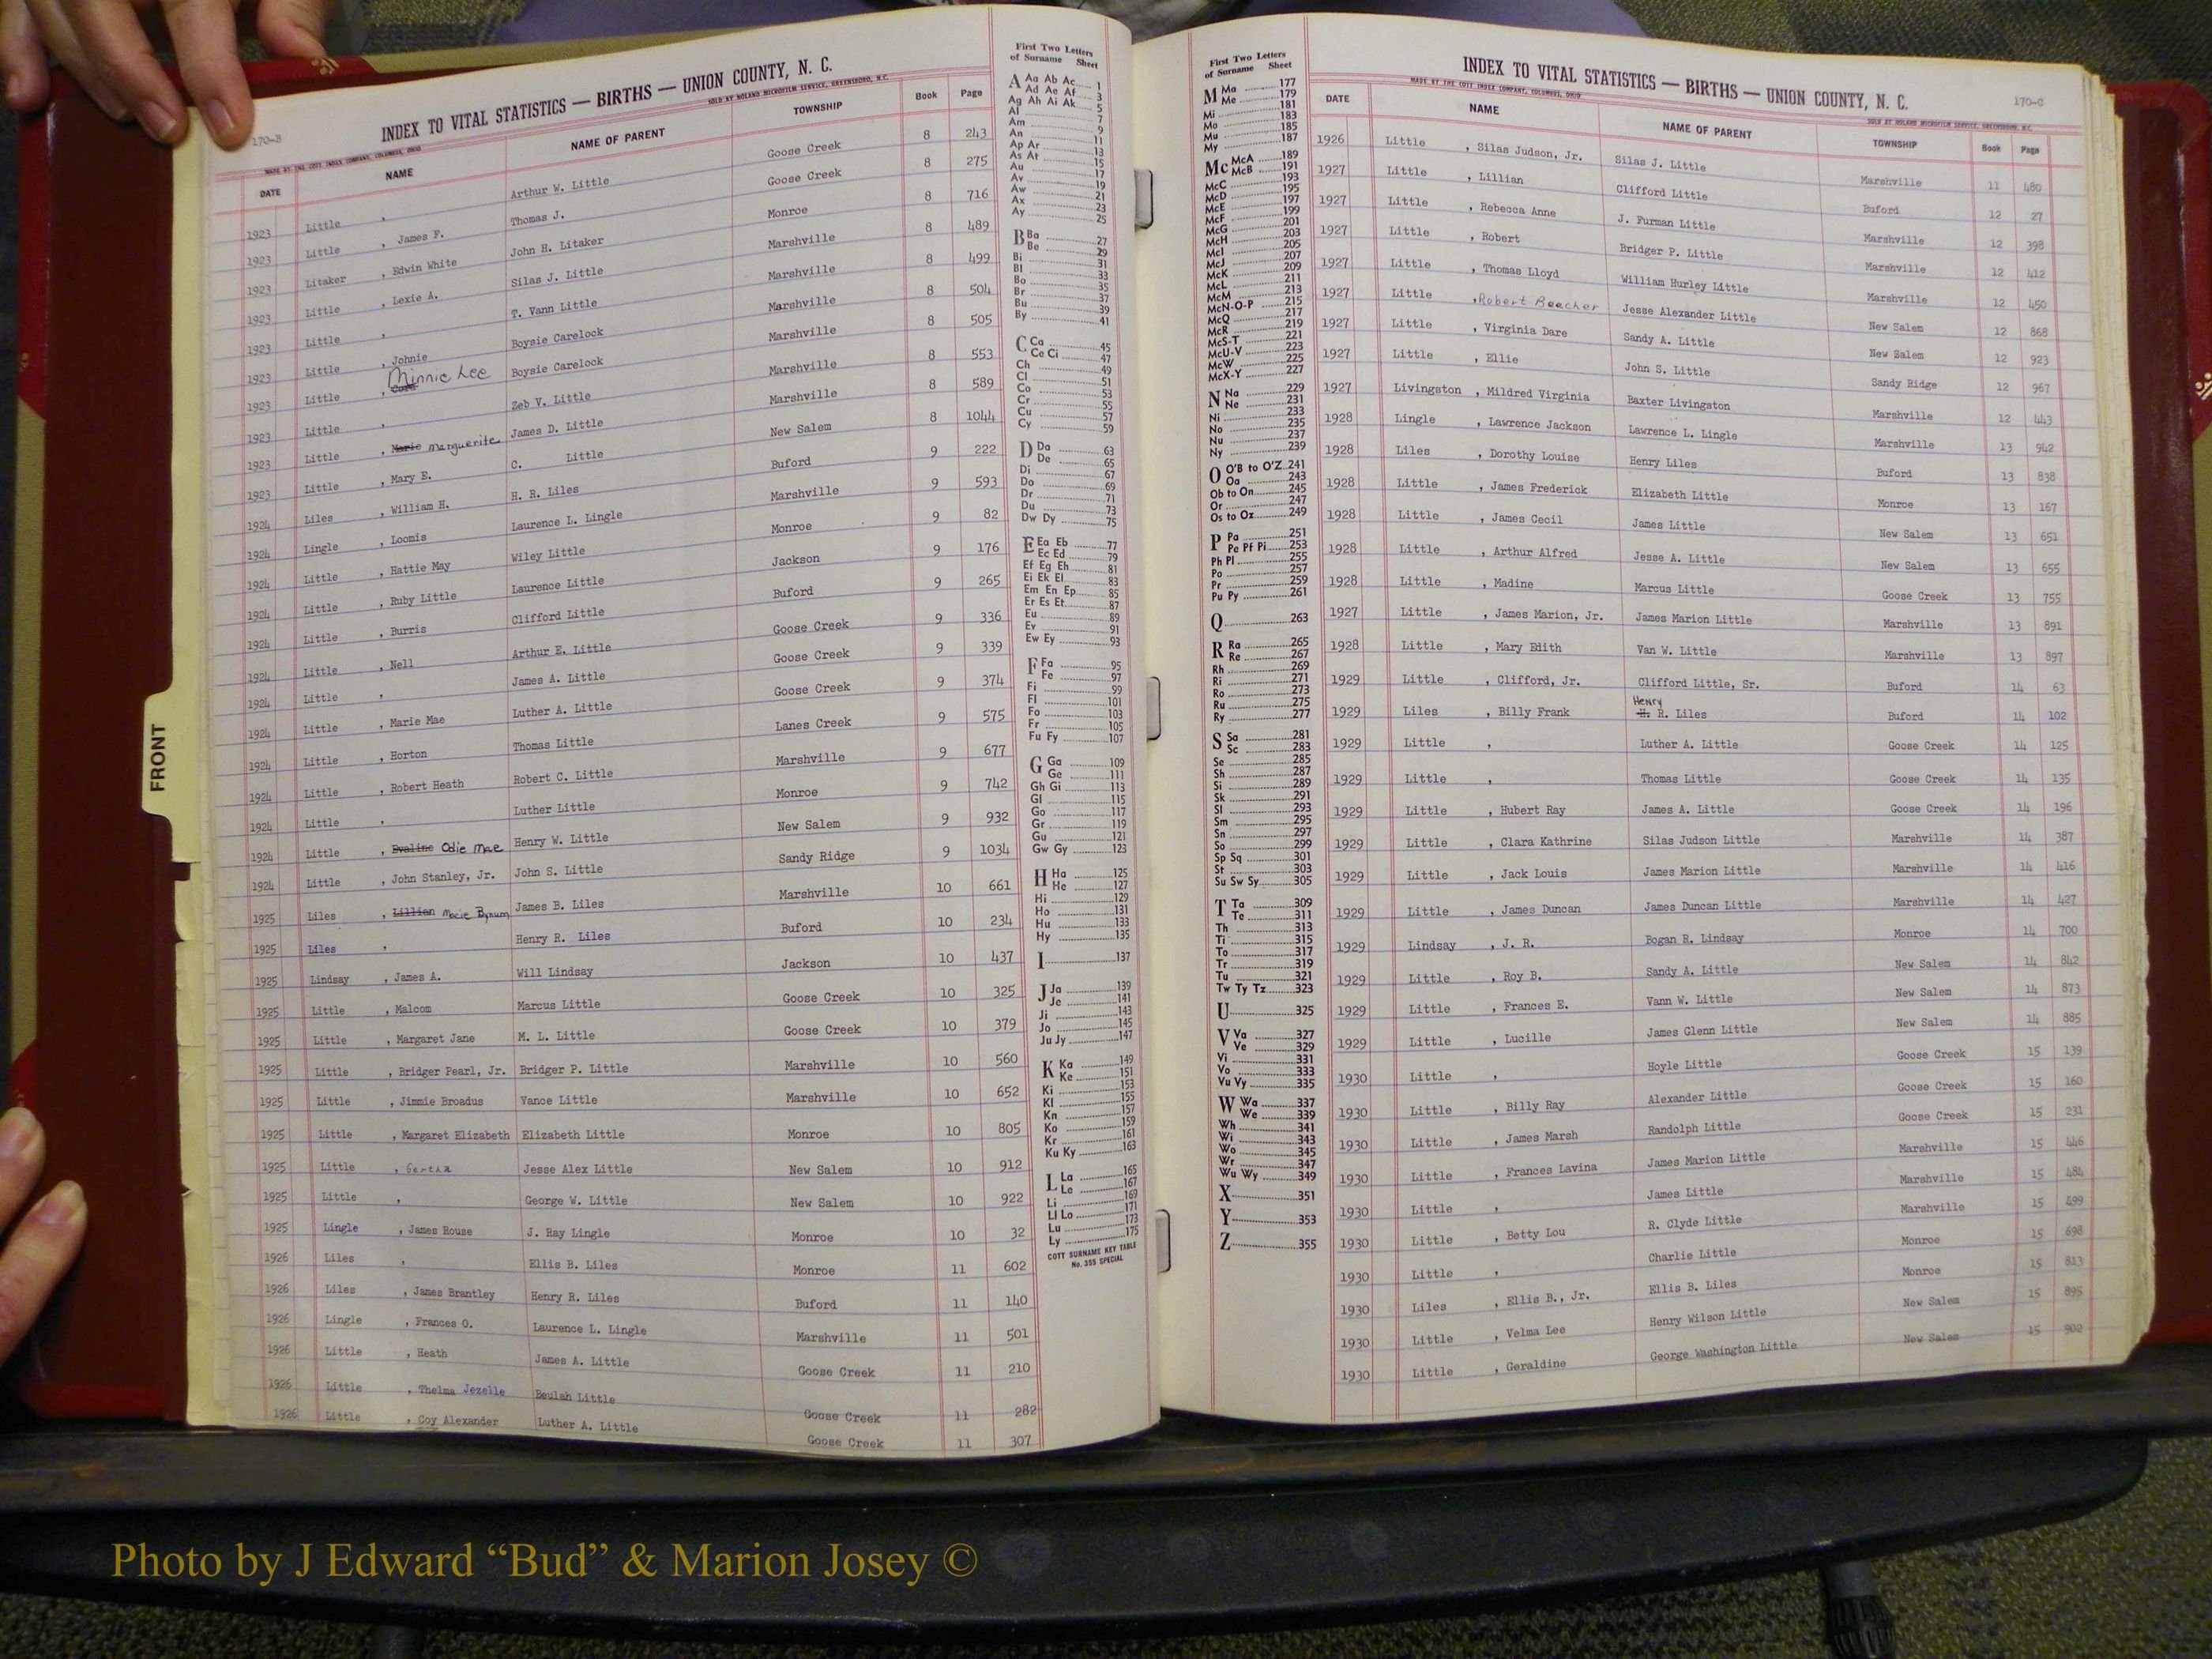 170-B
INDEX TO VITAL STATISTICS — BIRTHS — UNION COUNTY, N. C.
MADE BY THE COTT INDEX COMPANY, COLUMBUS, OHIO SOLD BY NOLAND MICROFILM SERVICE, GREENSBORO, N.C.
DATE NAME NAME OF PARENT TOWNSHIP Book Page
1923 Little , Arthur W. Little Goose Creek 8 243
1923 Little , James F. Thomas J. Goose Creek 8 275
1923 Litaker , Edwin White John H. Litaker Monroe 8 716
1923 Little , Lexie A. Silas J. Little Marshville 8 489
1923 Little , T. Vann Little Marshville 8 499
1923 Little , Johnie Boysie Carelock Marshville 8 504
1923 Little , Minnie Lee Boysie Carelock Marshville 8 505
1923 Little , Zeb V. Little Marshville 8 553
1923 Little , Marie Marguerite James D. Little Marshville 8 589
1923 Little , Mary E. C. Little New Salem 8 1044
1924 Liles , William H. H. R. Liles Buford 9 222
1924 Lingle , Loomis Laurence L. Lingle Marshville 9 593
1924 Little , Hattie May Wiley Little Monroe 9 82
1924 Little , Ruby Little Laurence Little Jackson 9 176
1924 Little , Burris Clifford Little Buford 9 265
1924 Little , Nell Arthur E. Little Goose Creek 9 336
1924 Little , James A. Little Goose Creek 9 339
1924 Little , Marie Mae Luther A. Little Goose Creek 9 374
1924 Little , Horton Thomas Little Lanes Creek 9 575
1924 Little , Robert Heath Robert C. Little Marshville 9 677
1924 Little , Luther Little Monroe 9 742
1924 Little , Evaline Odie Mae Henry W. Little New Salem 9 932
1924 Little , John Stanley, Jr. John S. Little Sandy Ridge 9 1034
1925 Liles , Lillian Macie Bynum James B. Liles Marshville 10 661
1925 Liles , Henry R. Liles Buford 10 234
1925 Lindsay , James A. Will Lindsay Jackson 10 437
1925 Little , Malcom Marcus Little Goose Creek 10 325
1925 Little , Margaret Jane M. L. Little Goose Creek 10 379
1925 Little , Bridger Pearl, Jr. Bridger P. Little Marshville 10 560
1925 Little , Jimmie Broadus Vance Little Marshville 10 652
1925 Little , Margaret Elizabeth Elizabeth Little Monroe 10 805
1925 Little , Gertha Jesse Alex Little New Salem 10 912
1925 Little , George W. Little New Salem 10 922
1925 Lingle , James Rouse J. Ray Lingle Monroe 10 32
1926 Liles , Ellis B. Liles Monroe 11 602
1926 Liles , James Brantley Henry R. Liles Buford 11 140
1926 Lingle , Frances O. Laurence L. Lingle Marshville 11 501
1926 Little , Heath James A. Little Goose Creek 11 210
1926 Little , Thelma Jezelle Beulah Little Goose Creek 11 282
1926 Little , Coy Alexander Luther A. Little Goose Creek 11 307
FRONT
First Two Letters
of Surname Sheet
A Aa Ab Ac 1
Ad Ae Af 3
Ag Ah Ai Ak 5
Al 7
Am 9
An 11
Ap Ar 13
As At 15
Au 17
Av 19
Aw 21
Ax 23
Ay 25
B Ba 27
Be 29
Bi 31
Bl 33
Bo 35
Br 37
Bu 39
By 41
C Ca 45
Ce Ci 47
Ch 49
Cl 51
Co 53
Cr 55
Cu 57
Cy 59
D Da 63
De 65
Di 67
Do 69
Dr 71
Du 73
Dw Dy 75
E Ea Eb 77
Ec Ed 79
Ef Eg Eh 81
Ei Ek El 83
Em En Ep 85
Er Es Et 87
Eu 89
Ev 91
Ew Ey 93
F Fa 95
Fe 97
Fi 99
Fl 101
Fo 103
Fr 105
Fu Fy 107
G Ga 109
Ge 111
Gh Gi 113
Gl 115
Go 117
Gr 119
Gu 121
Gw Gy 123
H Ha 125
He 127
Hi 129
Ho 131
Hu 133
Hy 135
I 137
J Ja 139
Je 141
Ji 143
Jo 145
Ju Jy 147
K Ka 149
Ke 151
Ki 153
Kl 155
Kn 157
Ko 159
Kr 161
Ku Ky 163
L La 165
Le 167
Li 169
Ll Lo 171
Lu 173
Ly 175
COTT SURNAME KEY TABLE
No. 355 SPECIAL
First Two Letters
of Surname Sheet
M Ma 177
Me 179
Mi 181
Mo 183
Mu 185
My 187
Mc McA 189
McB 191
McC 193
McD 195
McE 197
McF 199
McG 201
McH 203
McI 205
McJ 207
McK 209
McL 211
McM 213
McN-O-P 215
McQ 217
McR 219
McS-T 221
McU-V 223
McW 225
McX-Y 227
N Na 229
Ne 231
Ni 233
No 235
Nu 237
Ny 239
O O'B to O'Z 241
Oa 243
Ob to On 245
Or 247
Os to Oz 249
P Pa 251
Pe Pf Pi 253
Ph Pl 255
Po 257
Pr 259
Pu Py 261
Q 263
R Ra 265
Re 267
Rh 269
Ri 271
Ro 273
Ru 275
Ry 277
S Sa 281
Sc 283
Se 285
Sh 287
Si 289
Sk 291
Sl 293
Sm 295
Sn 297
So 299
Sp Sq 301
St 303
Su Sw Sy 305
T Ta 309
Te 311
Th 313
Ti 315
To 317
Tr 319
Tu 321
Tw Ty Tz 323
U 325
V Va 327
Ve 329
Vi 331
Vo 333
Vu Vy 335
W Wa 337
We 339
Wh 341
Wi 343
Wo 345
Wr 347
Wu Wy 349
X 351
Y 353
Z 355
170-C
INDEX TO VITAL STATISTICS — BIRTHS — UNION COUNTY, N. C.
MADE BY THE COTT INDEX COMPANY, COLUMBUS, OHIO SOLD BY NOLAND MICROFILM SERVICE, GREENSBORO, N.C.
DATE NAME NAME OF PARENT TOWNSHIP Book Page
1926 Little , Silas Judson, Jr. Silas J. Little Marshville 11 480
1927 Little , Lillian Clifford Little Buford 12 27
1927 Little , Rebecca Anne J. Furman Little Marshville 12 398
1927 Little , Robert Bridger P. Little Marshville 12 412
1927 Little , Thomas Lloyd William Hurley Little Marshville 12 450
1927 Little , Robert Beecher Jesse Alexander Little New Salem 12 868
1927 Little , Virginia Dare Sandy A. Little New Salem 12 923
1927 Little , Ellie John S. Little Sandy Ridge 12 967
1927 Livingston , Mildred Virginia Baxter Livingston Marshville 12 443
1928 Lingle , Lawrence Jackson Lawrence L. Lingle Marshville 13 942
1928 Liles , Dorothy Louise Henry Liles Buford 13 838
1928 Little , James Frederick Elizabeth Little Monroe 13 167
1928 Little , James Cecil James Little New Salem 13 651
1928 Little , Arthur Alfred Jesse A. Little New Salem 13 655
1928 Little , Madine Marcus Little Goose Creek 13 755
1927 Little , James Marion, Jr. James Marion Little Marshville 13 891
1928 Little , Mary Edith Van W. Little Marshville 13 897
1929 Little , Clifford, Jr. Clifford Little, Sr. Buford 14 63
1929 Liles , Billy Frank Henry H. R. Liles Buford 14 102
1929 Little , Luther A. Little Goose Creek 14 125
1929 Little , Thomas Little Goose Creek 14 135
1929 Little , Hubert Ray James A. Little Goose Creek 14 196
1929 Little , Clara Kathrine Silas Judson Little Marshville 14 387
1929 Little , Jack Louis James Marion Little Marshville 14 416
1929 Little , James Duncan James Duncan Little Marshville 14 427
1929 Lindsay , J. R. Bogan R. Lindsay Monroe 14 700
1929 Little , Roy B. Sandy A. Little New Salem 14 842
1929 Little , Frances E. Vann W. Little New Salem 14 873
1929 Little , Lucille James Glenn Little New Salem 14 885
1930 Little , Hoyle Little Goose Creek 15 139
1930 Little , Billy Ray Alexander Little Goose Creek 15 160
1930 Little , James Marsh Randolph Little Goose Creek 15 231
1930 Little , Frances Lavina James Marion Little Marshville 15 446
1930 Little , James Little Marshville 15 484
1930 Little , Betty Lou R. Clyde Little Marshville 15 499
1930 Little , Charlie Little Monroe 15 698
1930 Liles , Ellis B., Jr. Ellis B. Liles Monroe 15 813
1930 Little , Velma Lee Henry Wilson Little New Salem 15 895
1930 Little , Geraldine George Washington Little New Salem 15 902
Photo by J Edward “Bud” & Marion Josey ©